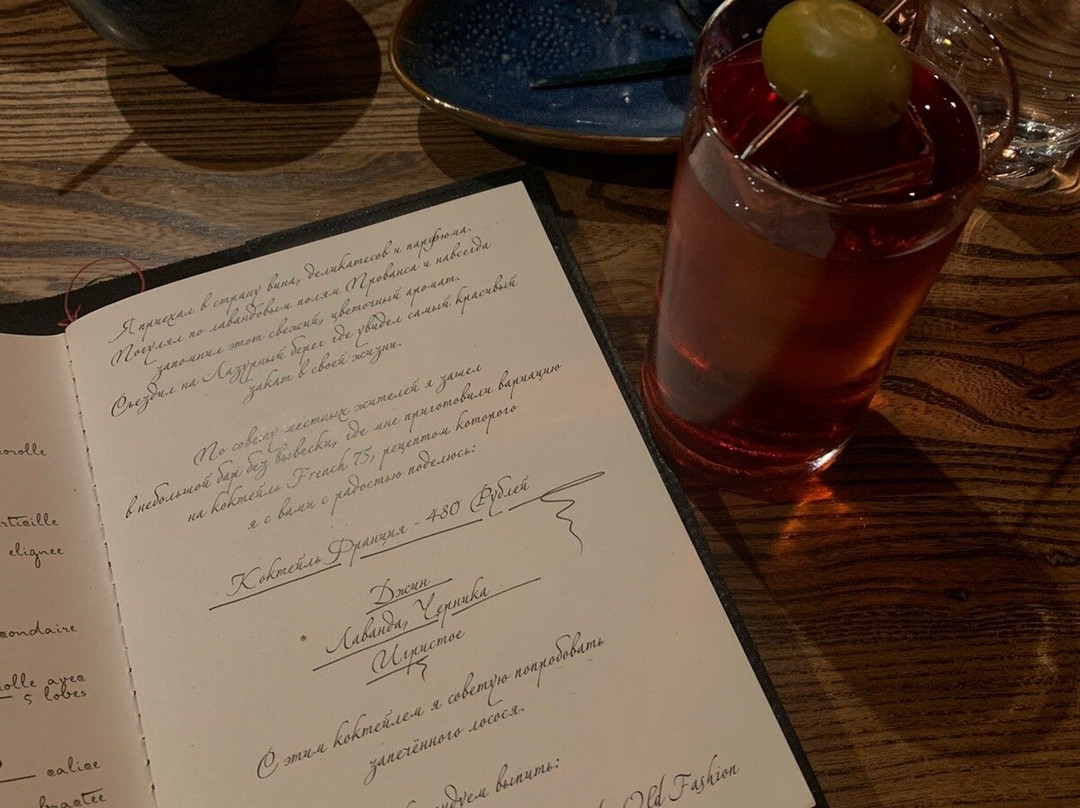 orolle
rtieille
elignee
condaire
rolle avec
5 lobes
calice
bractée
Я приехал в страну вина, деликатесов и парфюма.
Погулял по лавандовым полям Прованса и навсегда
запомнил этот свежий, цветочный аромат.
Съездил на Лазурный берег где увидел самый красивый
закат в своей жизни.
По совету местных жителей я зашел
в небольшой бар без вывески, где мне приготовили вариацию
на коктейль French 75, рецептом которого
я с вами с радостью поделюсь:
Коктейль Франция - 480 Рублей
Джин
Лаванда, Черника
Игристое
С этим коктейлем я советую попробовать
запечённого лосося.
ндуем выпить:
Old Fashion